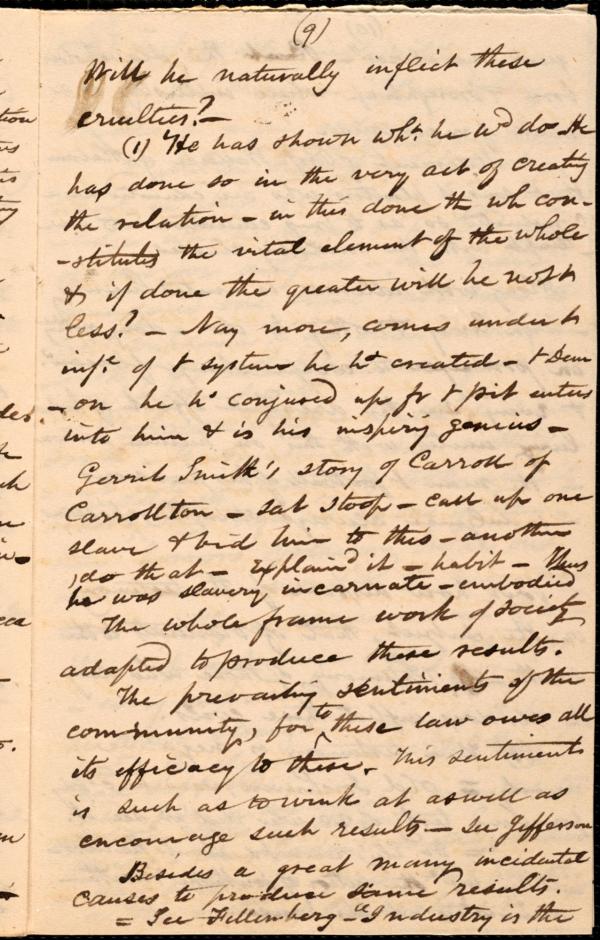 (9)
Will he naturally inflict these
cruelties?—
(1) He has shown wht. he wd do. He
has done so in the very act of creating
the relation – in this done th wh con-
-stitutes the vital element of the whole
& if done the greater will he not t
less? – Nay more, comes under t
infe. of t system he hs created – t Dem
-on he hs conjured up fr t pit enters
into him & is his inspiring genius –
Gerrit Smith's story of Carroll of
Carrollton – sat stoop – call up one
slave & bid him to this – another
do that – Explaind it – habit – Thus
he was slavery incarnate – embodied
The whole frame work of society
adapted to produce these results.
The prevailing sentiments of the
community, for to these law owes all
its efficacy to these. This sentiments
is such as to wink at as well as
encourage such results – see Jefferson
Besides a great many incidental
causes to produce same results.
= See Fellenberg – "Industry is the